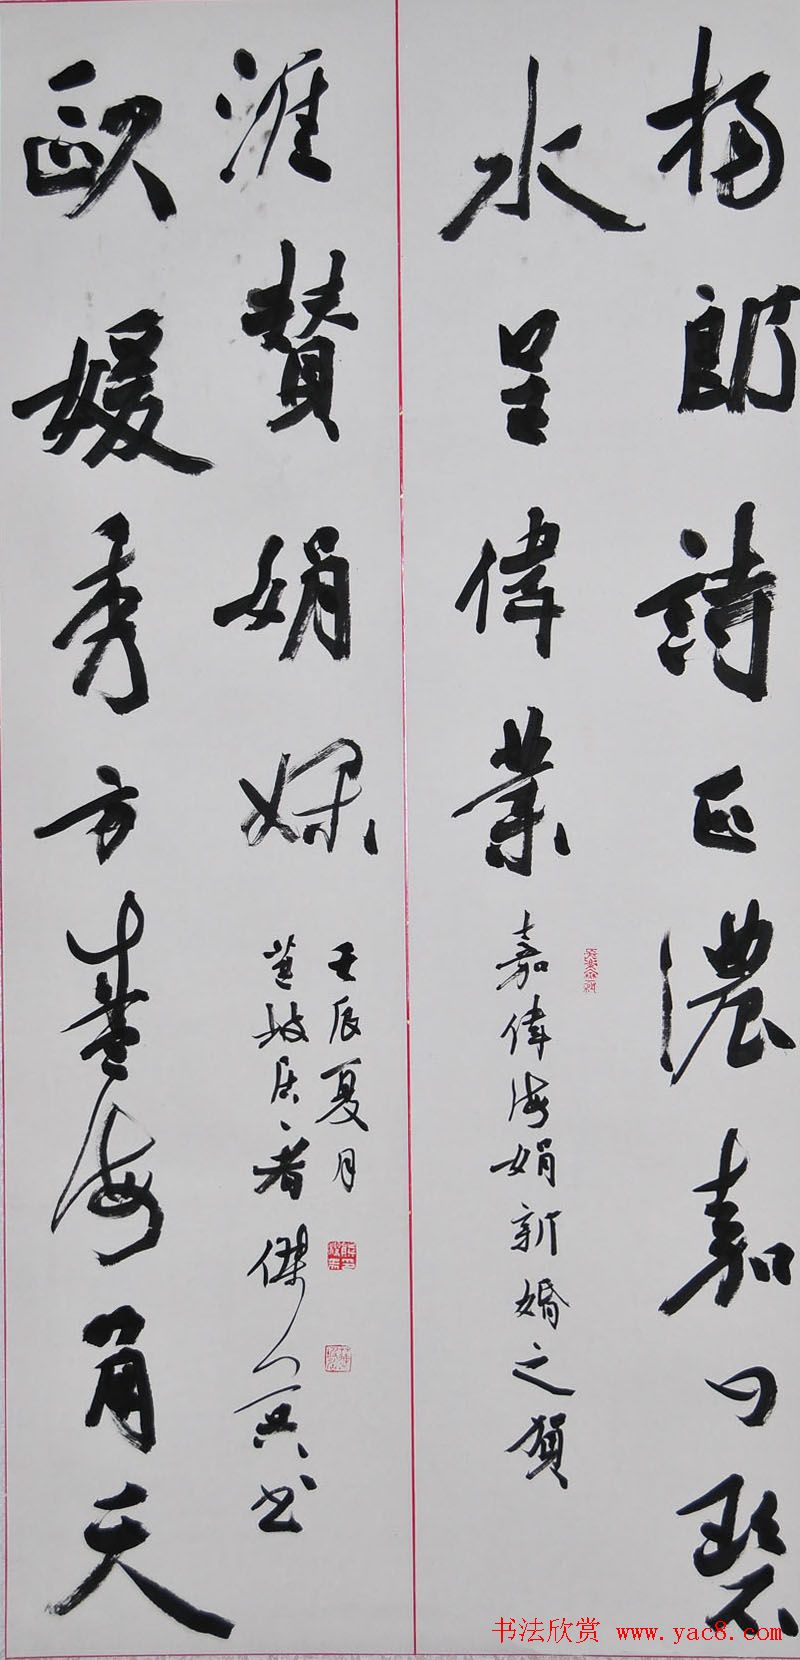 楊郎詩正濃嘉口碧
水呈偉業
嘉偉海娟新婚之賀
歐媛秀方盛海角天
涯贊娟
壬辰夏月
坡居者傑書
书法欣赏 www.yac8.com